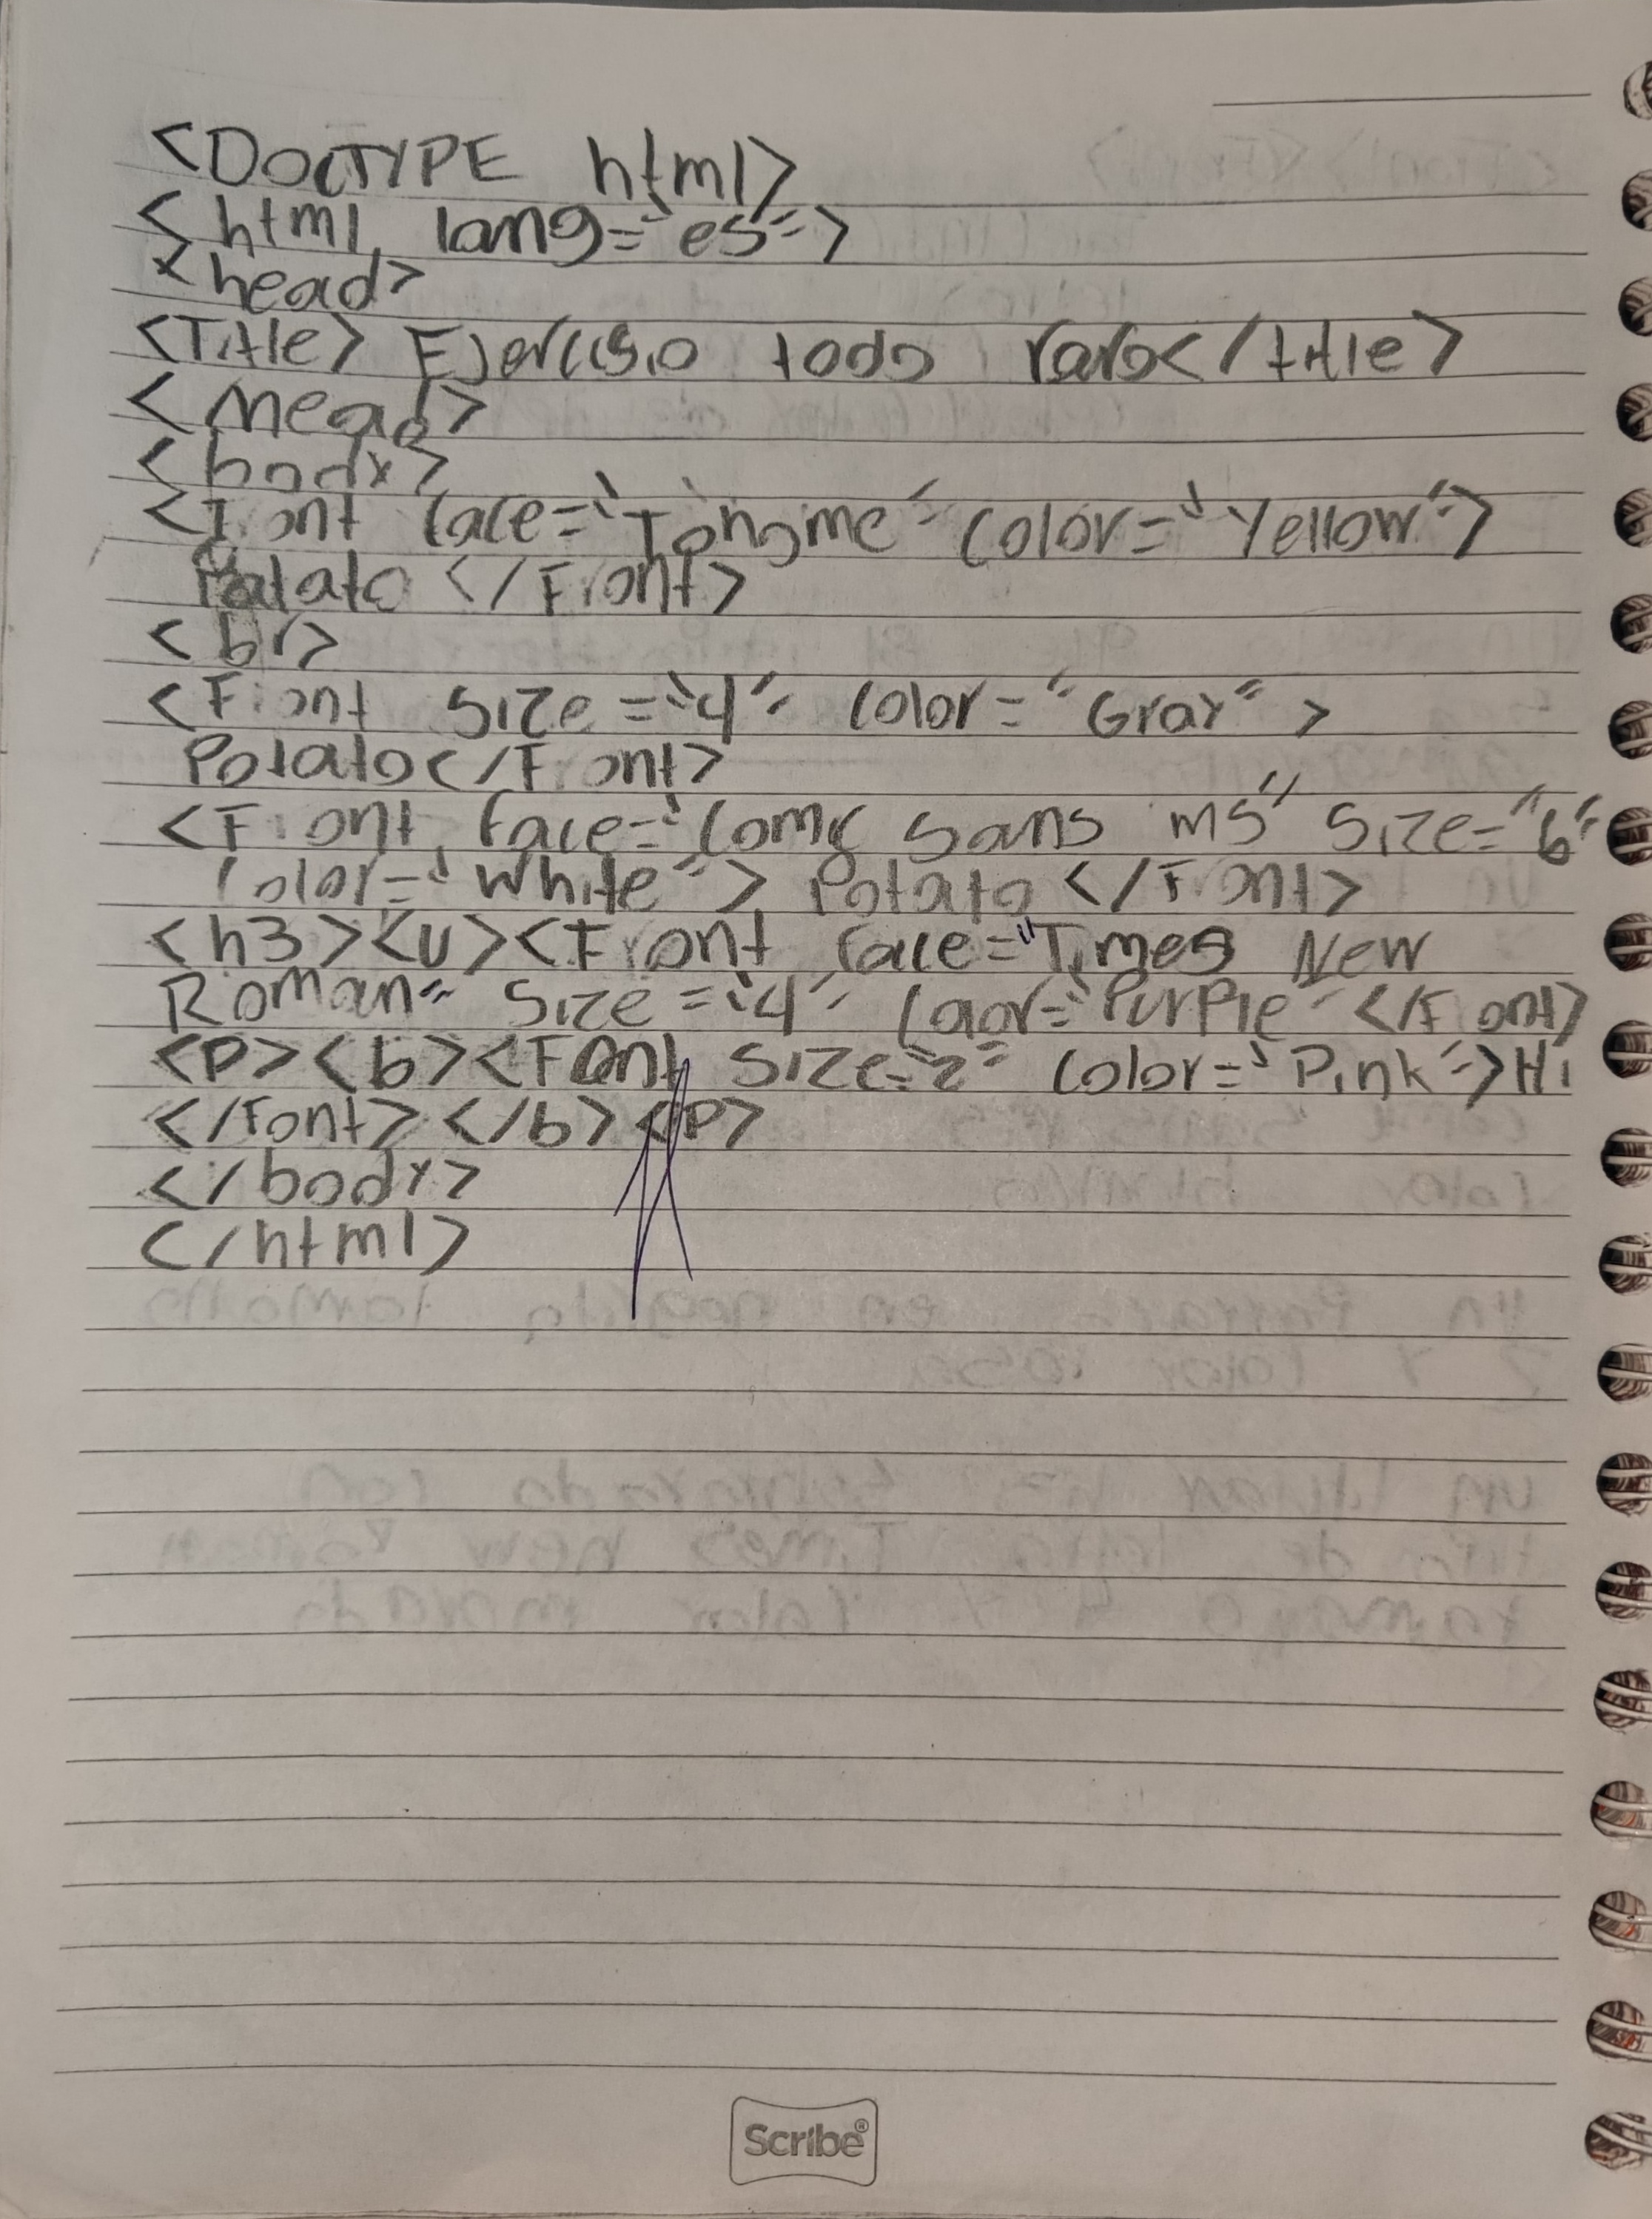 <DOCTYPE html>
<html lang="es">
<head>
<Title> Ejercisio todo raro</title>
<mead>
<body>
<Font face="Tongme" color="Yellow">
Patato </Front>
<br>
<Front Size="4" color="Gray">
Potato</Front>
<Front face="Comic Sans ms" Size="6"
Color="White"> Potato </Front>
<h3><u><Front face="Times New
Roman" Size="4" Color="Purple" </Font>
<P><b><Font SIZE="2" Color="Pink">Hi
</Font></b><P>
</body>
</html>
Scribe®